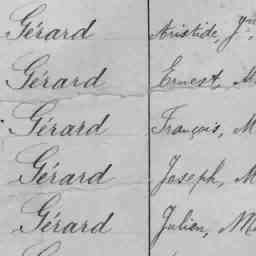 Gérard Aristide, Jn.
Gérard Ernest, M
Gérard François, M
Gérard Joseph, M
Gérard Julien, Ma